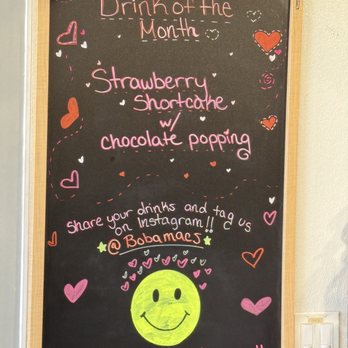 Drink of the
Month
Strawberry
Shortcake
w/
chocolate popping
Share your drinks and tag us
on Instagram!!
@Bobamacs